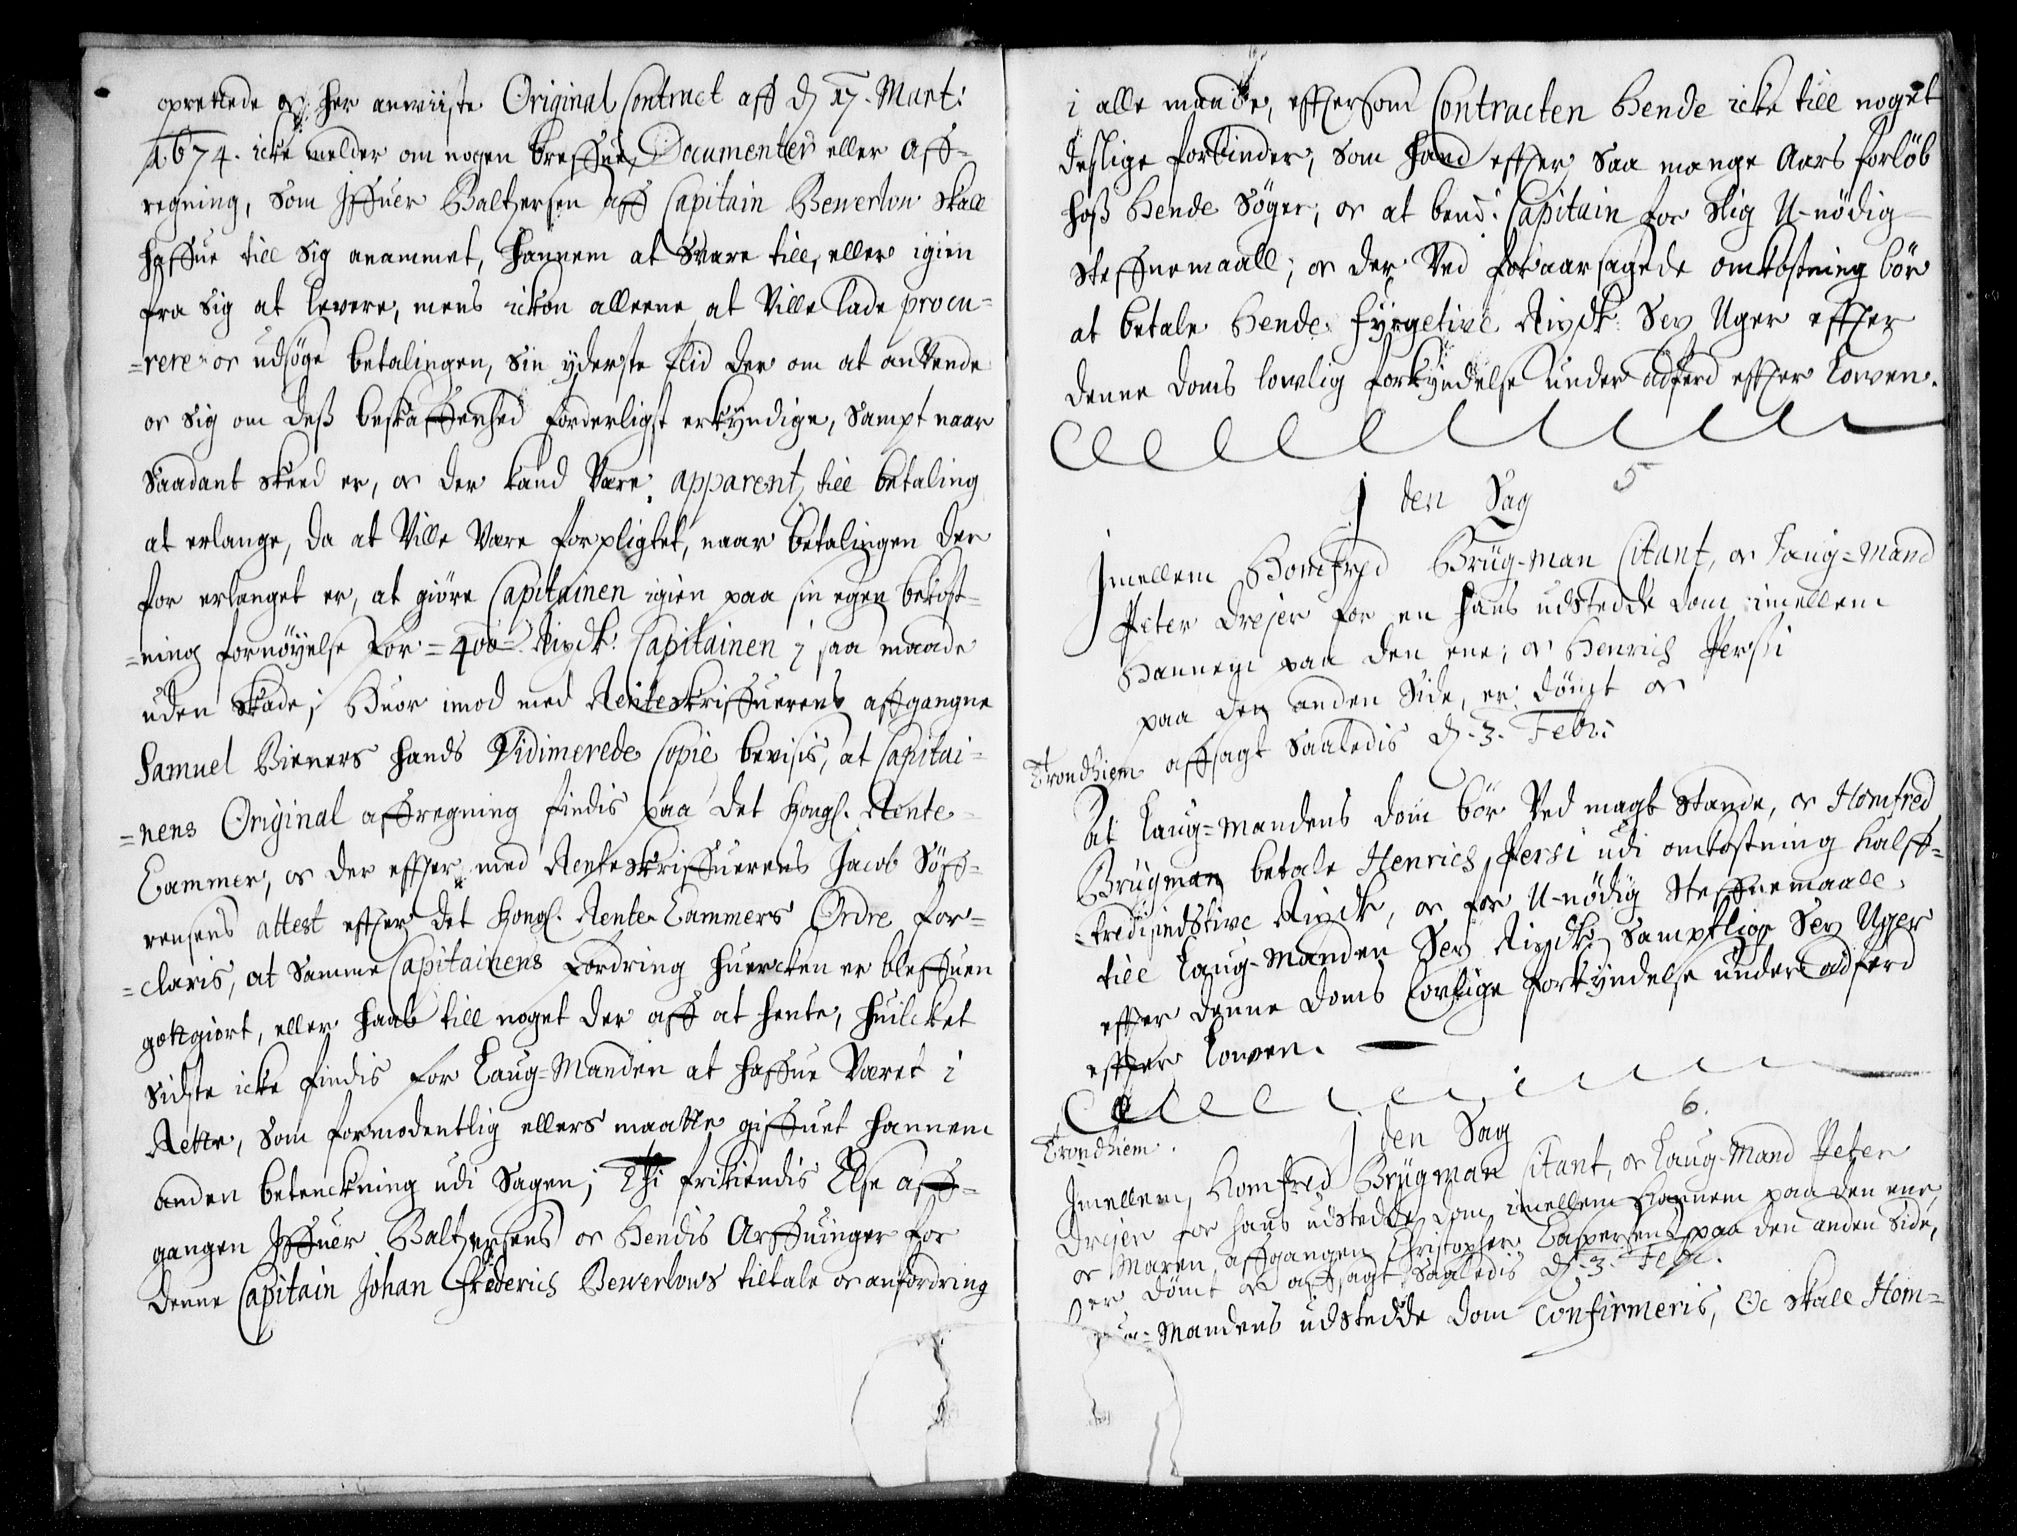 oprettede oc her anwiiste Original Contract aff d 17. Mart:
1674. icke melder om nogen breffue, Documenter eller Aff-
regning, som Iffuer Baltzersen aff Capitain Bewerlow skall
haffue till sig anammet, hannem at svare till, eller igien
fra sig at levere, mens ickon alleene at ville lade procu-
=rere oc udsøge betalingen, sin yderste flid der om at anvende
oc sig om deß beskaffenhed forderligst erkyndige, sampt naar
Saadant skeed er, oc der kand være apparent till betaling
at erlange, da at ville være forpligtet, naar betalingen der
for erlanget er, at giøre Capitainen igien paa sin egen bekost-
=ning fornøyelse for =400= Rixdlr: Capitainen i saa maade
uden skade; Huor imod med Renteskriffuerens affgangne
Samuel Bieners hands Vidimerede Copie bevisis, at Capitai-
=nens Original affregning findis paa det Kongl. Rente-
Cammer, oc der effter med Renteskriffuerens Jacob Søff-
rensens attest effter det Kongl. Rente Cammers Ordre for-
=claris, at samme Capitainens Fordring huercken er bleffuen
gottgiort, eller haab till noget der aff at hente, huilcket
Sidste icke findis for Laug-Manden at haffue Været i
Rette, som formodentlig ellers maatte giffuet hannem
anden betenckning udi Sagen; Thi frikiendis Else aff-
gangen Iffuer Baltzersens oc Hendis Arffuinger for
denne Capitain Johan Friderich Bewerlows tiltale oc anfordring
i alle maade, efftersom Contracten Hende icke till noget
deslige forbinder, som hand effter saa mange Aars forløb
hoß Hende søger, oc at bemt: Capitain for slig U-nødig
steffnemaall; oc der ved foraarsagede omkostning bør
at betale Hende Fyrgetive Rixdlr: Sex Uger effter
denne doms lowlig forkyndelse under adferd effter Lowen.
5
I den Sag
Imellem Homfred Brüg-man Citant, oc Laug-Mand
Peter Drejer for en hans udstedde dom imellem
Hannem paa den ene, oc Henrich Persi
paa den anden Side, er dømt oc
Trondhiem affsagt saaledis d. 3. Febr:
At Laug-Mandens dom bør ved magt stande, oc Homfred
Brügman betale Henrich Persi udi omkostning halff-
=tredisindstive Rixdlr, oc for U-nødig Steffnemaall
till Laug-Manden Sex Rixdlr, samptlige Sex Uger
effter denne doms lovlige forkyndelse under adferd
effter Lowen.
6.
Trondhiem. I den Sag
Imellem, Homfred Brügman Citant, oc Laug-Mand Peter
Drejer for hans udstedde dom, imellem Hannem paa den ene,
oc Maren affgangen Christopher Caspersens paa den anden Side,
er dømt oc affsagt saaledis d. 3. Febr.
-Mandens udstedde dom Confirmeris, Oc skall Hom-